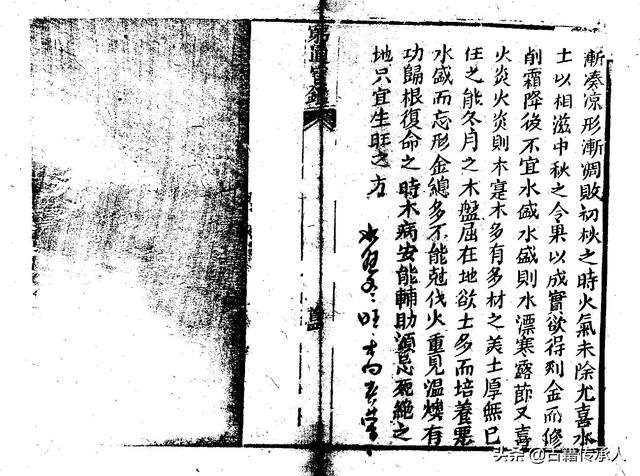 漸凄凉形漸凋敗初秋之時火氣未除尤喜水
土以相滋中秋之令果以成實欲得剛金而修
削霜降後不宜水盛水盛則水漂寒露節又喜
火炎火炎則木寔木多有多材之美土厚無已
任之能冬月之木盤屈在地欲土多而培養惡
水盛而忘形金總多不能尅伐火重見温燠有
功歸根復命之時木病安能輔助須忌死絶之
地只宜生旺之方
窮通寳鑑
头条 @古籍传承人